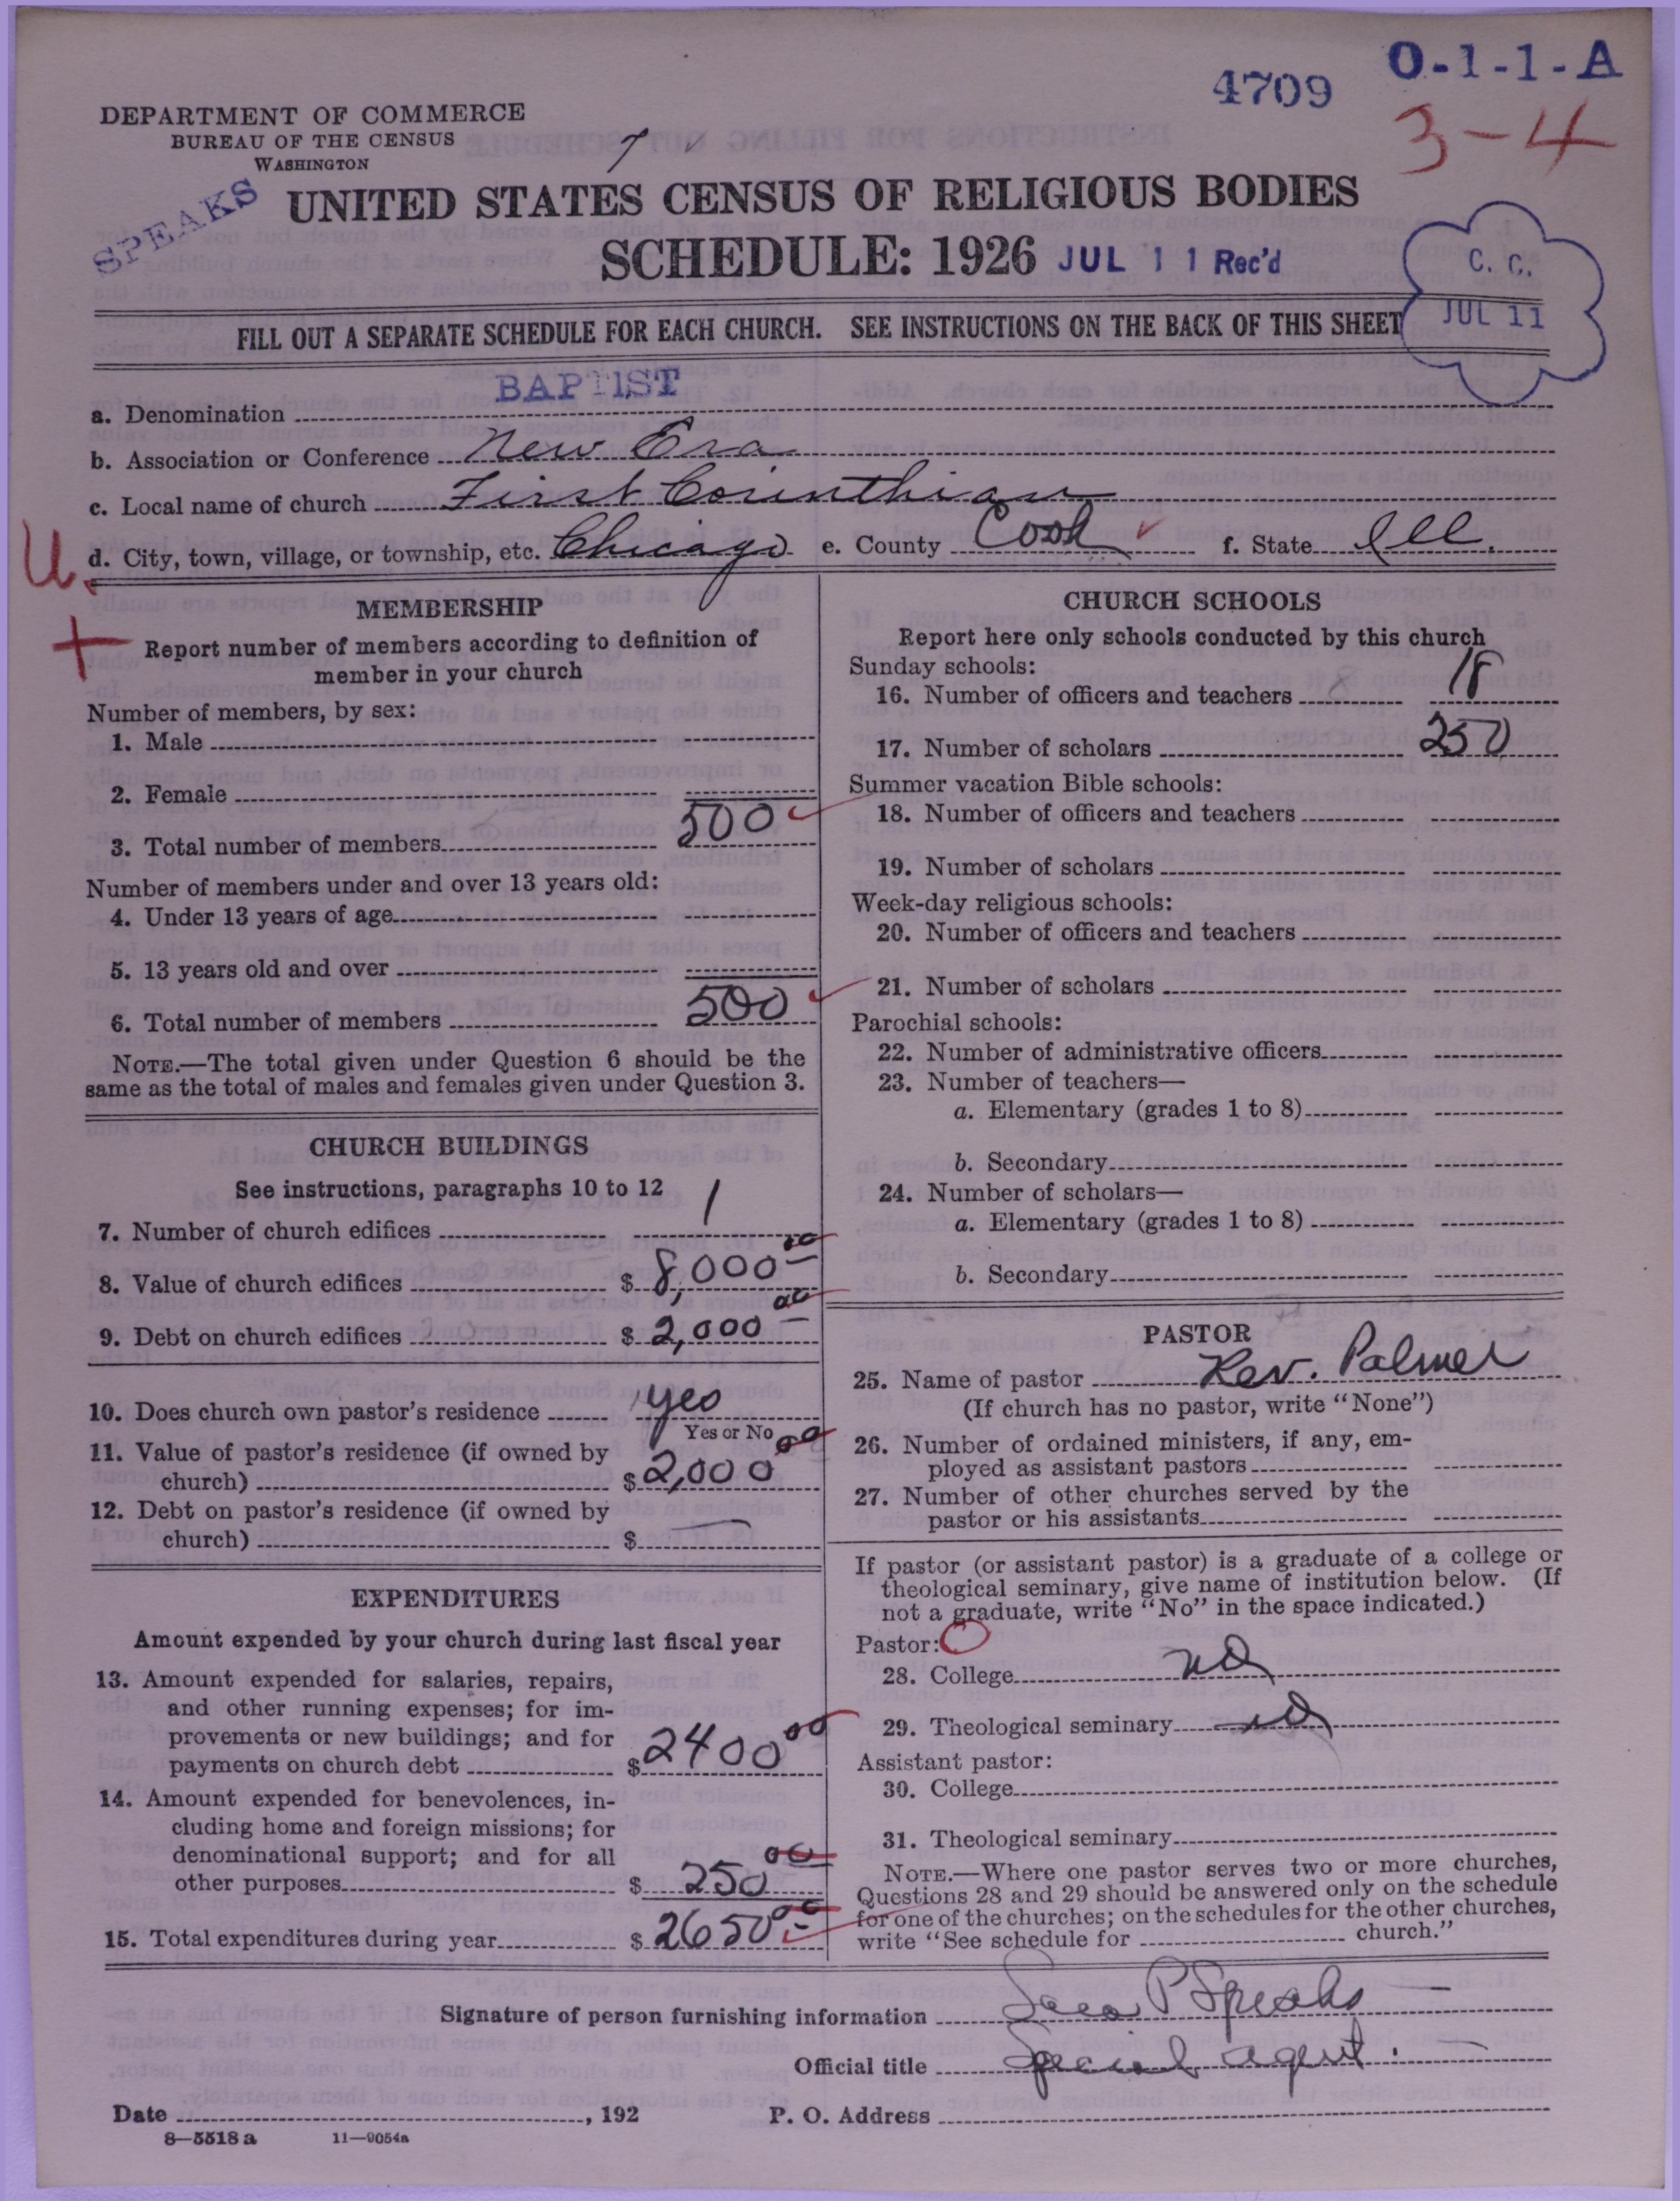 4709
O-1-1-A
3-4
DEPARTMENT OF COMMERCE
BUREAU OF THE CENSUS
WASHINGTON
SPEAKS
UNITED STATES CENSUS OF RELIGIOUS BODIES
SCHEDULE: 1926 JUL 11 Rec'd
C. C.
JUL 11
FILL OUT A SEPARATE SCHEDULE FOR EACH CHURCH. SEE INSTRUCTIONS ON THE BACK OF THIS SHEET
a. Denomination BAPTIST
b. Association or Conference New Era
c. Local name of church First Corinthian
d. City, town, village, or township, etc. Chicago e. County Cook f. State Ill.
U.
MEMBERSHIP
Report number of members according to definition of
member in your church
Number of members, by sex:
1. Male
2. Female
3. Total number of members 500
Number of members under and over 13 years old:
4. Under 13 years of age
5. 13 years old and over
6. Total number of members 500
NOTE.—The total given under Question 6 should be the
same as the total of males and females given under Question 3.
CHURCH BUILDINGS
See instructions, paragraphs 10 to 12
7. Number of church edifices 1
8. Value of church edifices $ 8,000 00
9. Debt on church edifices $ 2,000 00
10. Does church own pastor's residence yes
Yes or No
11. Value of pastor's residence (if owned by
church) $ 2,000 00
12. Debt on pastor's residence (if owned by
church) $ —
EXPENDITURES
Amount expended by your church during last fiscal year
13. Amount expended for salaries, repairs,
and other running expenses; for im-
provements or new buildings; and for
payments on church debt $ 2400 00
14. Amount expended for benevolences, in-
cluding home and foreign missions; for
denominational support; and for all
other purposes $ 250 00
15. Total expenditures during year $ 2650 00
CHURCH SCHOOLS
Report here only schools conducted by this church
Sunday schools:
16. Number of officers and teachers 18
17. Number of scholars 250
Summer vacation Bible schools:
18. Number of officers and teachers
19. Number of scholars
Week-day religious schools:
20. Number of officers and teachers
21. Number of scholars
Parochial schools:
22. Number of administrative officers
23. Number of teachers—
a. Elementary (grades 1 to 8)
b. Secondary
24. Number of scholars—
a. Elementary (grades 1 to 8)
b. Secondary
PASTOR
25. Name of pastor Rev. Palmer
(If church has no pastor, write "None")
26. Number of ordained ministers, if any, em-
ployed as assistant pastors
27. Number of other churches served by the
pastor or his assistants
If pastor (or assistant pastor) is a graduate of a college or
theological seminary, give name of institution below. (If
not a graduate, write "No" in the space indicated.)
Pastor:
28. College no
29. Theological seminary no
Assistant pastor:
30. College
31. Theological seminary
NOTE.—Where one pastor serves two or more churches,
Questions 28 and 29 should be answered only on the schedule
for one of the churches; on the schedules for the other churches,
write "See schedule for church."
Signature of person furnishing information Sara P Speaks
Official title Special agent.
Date , 192 P. O. Address
8—5518 a 11—9054a